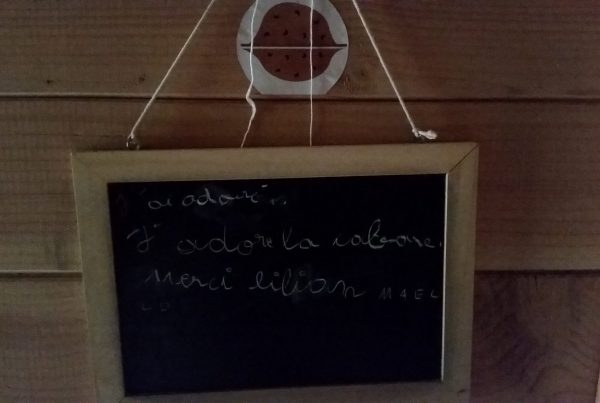 J'ai adoré
J'adore la cabane.
Merci lilian MAEL